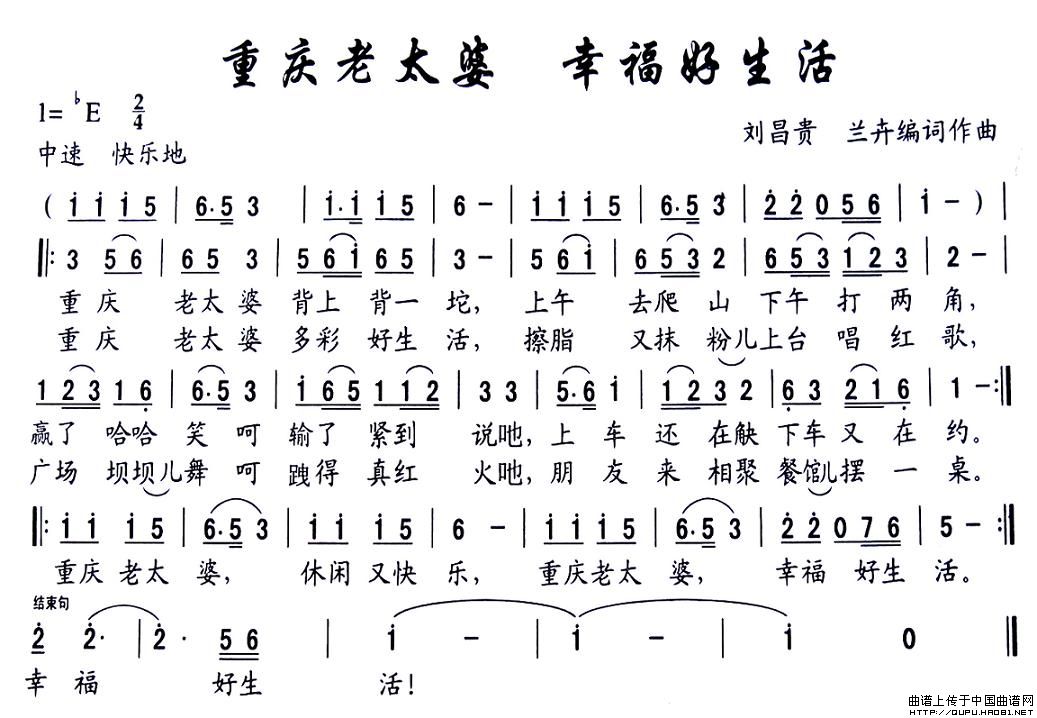 重庆老太婆 幸福好生活
1=♭E 2/4
刘昌贵 兰卉编词作曲
中速 快乐地
( i i i 5 | 6·5 3 | i·i i 5 | 6 – | i i i 5 | 6·5 3 | 2̇ 2̇ 0 5 6 | i – ) |
‖: 3 5 6 | 6 5 3 | 5 6 i 6 5 | 3 – | 5 6 i | 6·5 3 2 | 6 5 3 1 2 3 | 2 – |
重庆 老太婆 背上 背一 坨, 上午 去爬 山 下午 打 两 角,
重庆 老太婆 多彩 好生 活, 擦脂 又抹 粉儿上台 唱 红 歌,
1 2 3 1 6̣ | 6·5 3 | i 6 5 1 1 2 | 3 3 | 5·6 i | 1 2 3 2 | 6̣ 3 2 1 6̣ | 1 – :‖
赢了 哈哈 笑 呵 输了 紧到 说吔, 上 车 还 在觖 下车 又 在 约。
广场 坝坝儿舞 呵 跩得 真红 火吔, 朋 友 来 相聚 餐馆儿摆 一 桌。
‖: i i i 5 | 6·5 3 | i i i 5 | 6 – | i i i 5 | 6·5 3 | 2̇ 2̇ 0 7 6 | 5 – :‖
重庆 老太 婆, 休闲 又快 乐, 重庆老太 婆, 幸福 好生 活。
结束句
2̇ 2̇· | 2̇· 5 6 | i – | i – | i 0 ‖
幸 福 好生 活!
曲谱上传于中国曲谱网
HTTP://QUPU.HAO81.NET